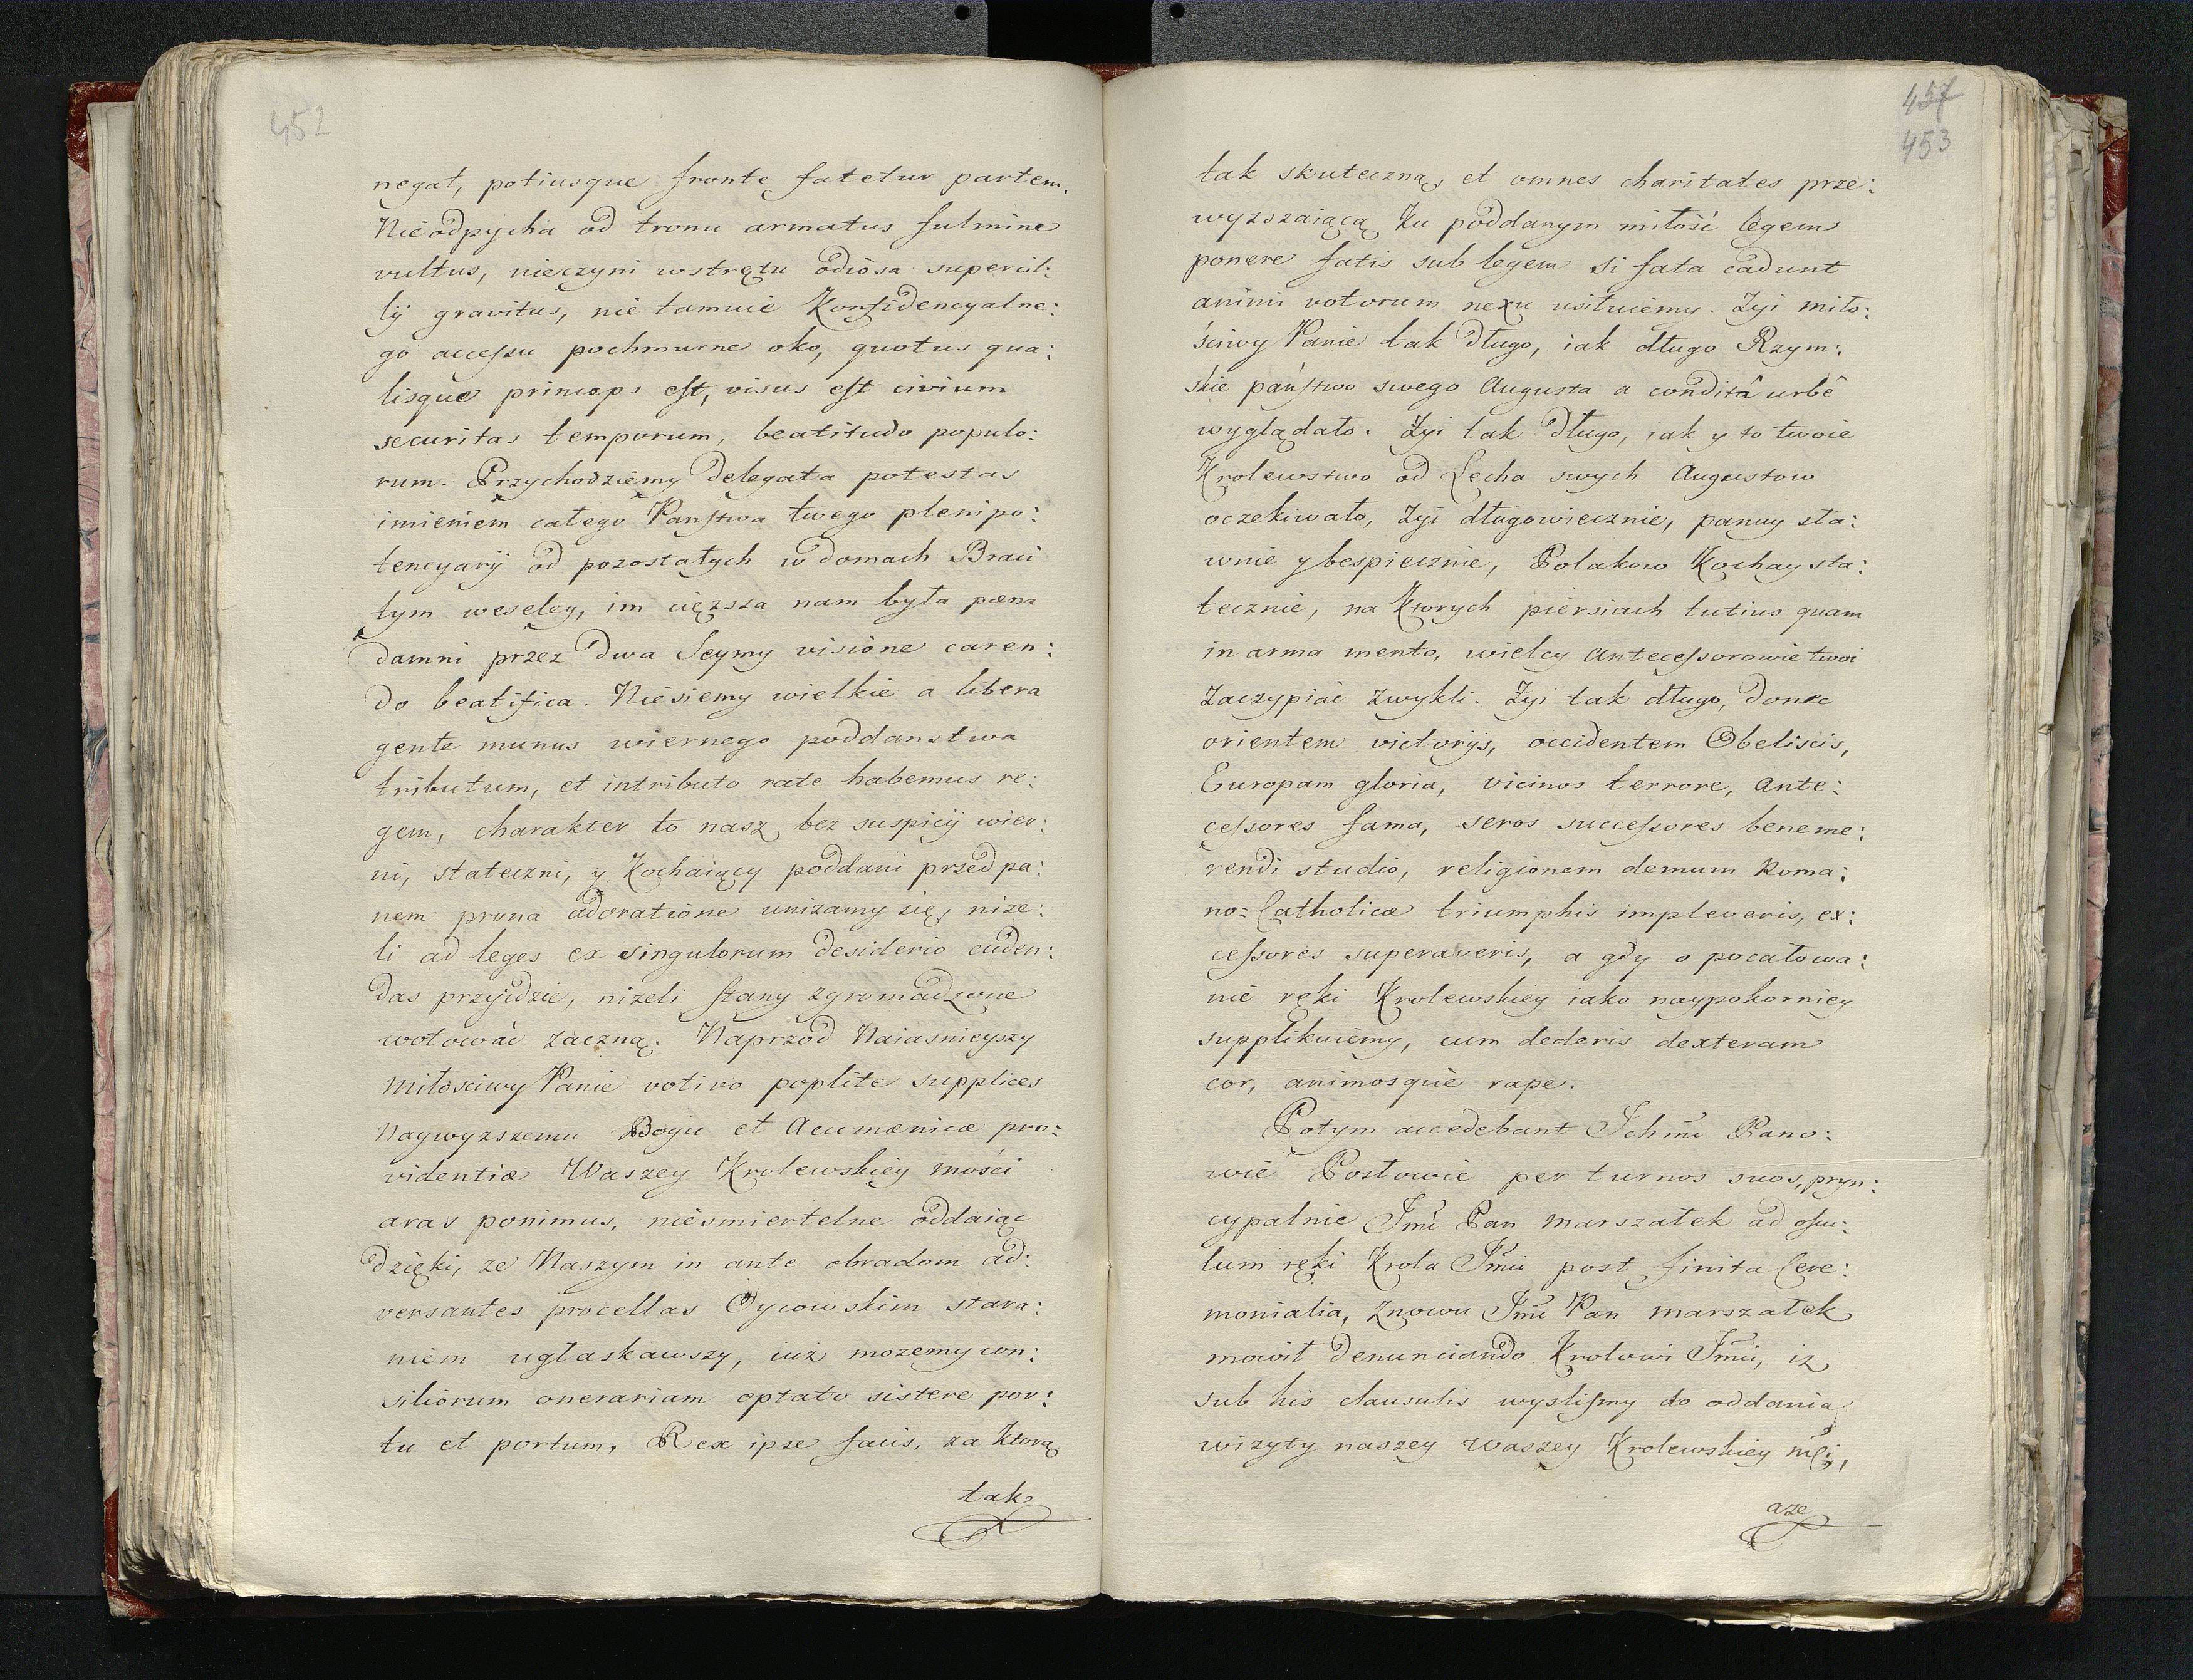 452
negat, potiusque fronte fatetur partem.
Nie odpycha od tronu armatus fulmine
vultus, nieczyni wstrętu odiosa supercil:
lij gravitas, nie tamuie Konfidencyalne:
go accessu pochmurne oko, quotus qua:
lisque princeps est, visus est civium
securitas temporum, beatitudo populo:
rum. Przychodziemy delegata potestas
imieniem całego Państwa twego plenipo:
tencyarij od pozostałych w domach Braci
tym weseley, im cięzsza nam była pœna
damni przez dwa Seymy visione caren:
do beatifica. Niesiemy wielkie a libera
gente munus wiernego poddanstwa
tributum, et intributo rate habemus re:
gem, charakter to nasz bez suspicij wier:
ni, stateczni, y Kochaiący poddani przed pa:
nem prona adoratione unizamy się, nize:
li ad leges ex singulorum desiderio cuden:
das przyidzie, nizeli stany zgromadzone
wotować zaczną. Naprzod Naiasnieyszy
Miłosciwy Panie votivo poplite supplices
Naywyzszemu Bogu et Acumænicæ pro:
videntiæ Waszey Krolewskiey mości
aras ponimus, niesmiertelne oddaiąc
dzięki, ze Naszym in ante obradom ad:
versantes procellas Oycowskim stara:
niem ugłaskawszy, iuż mozemy con:
siliorum onerariam optato sistere por:
tu et portum, Rex ipse facis, za Ktorą
tak
457
453
tak skuteczną, et omnes charitates prze:
wyzszaiącą Ku poddanym miłość legem
ponere fatis sub legem si fata cadunt
animi votorum nexu usiłuiemy. Zyi miło:
ściwy Panie tak długo, iak długo Rzym:
skie państwo swego Augusta a conditâ urbê
wyglądało. Zyi tak długo, iak y to twoie
Krolewstwo od Lecha swych Augustow
oczekiwało, Zyi długowiecznie, panuy sła:
wnie y bespiecznie, Polakow Kochay sta:
tecznie, na Ktorych piersiach tutius quam
in arma mento, wielcy Antecessorowie twoi
Zaczypiać zwykli. Zyi tak długo, donec
orientem victorijs, occidentem Obeliscis,
Europam gloria, vicinos terrore, Ante:
cessores fama, seros successores beneme:
rendi studio, religionem demum Roma:
no=Catholicæ triumphis impleveris, ex:
cessores superaveris, a gdy o pocałowa:
nie ręki Krolewskiey iako naypokorniey
supplikuiemy, cum dederis dexteram
cor, animosquè rape.
Potym accedebant Ichmć Pano:
wie Posłowie per turnos suos, pryn:
cypalnie Jmć Pan Marszałek ad oscu:
lum ręki Krola Jmci post finita Cere:
monialia, Znowu Jmć Pan Marszałek
mowił denunciando Krolowi Jmci, iz
sub his clausulis wyslismy do oddania
wizyty naszey Waszey Krolewskiey mći,
aze